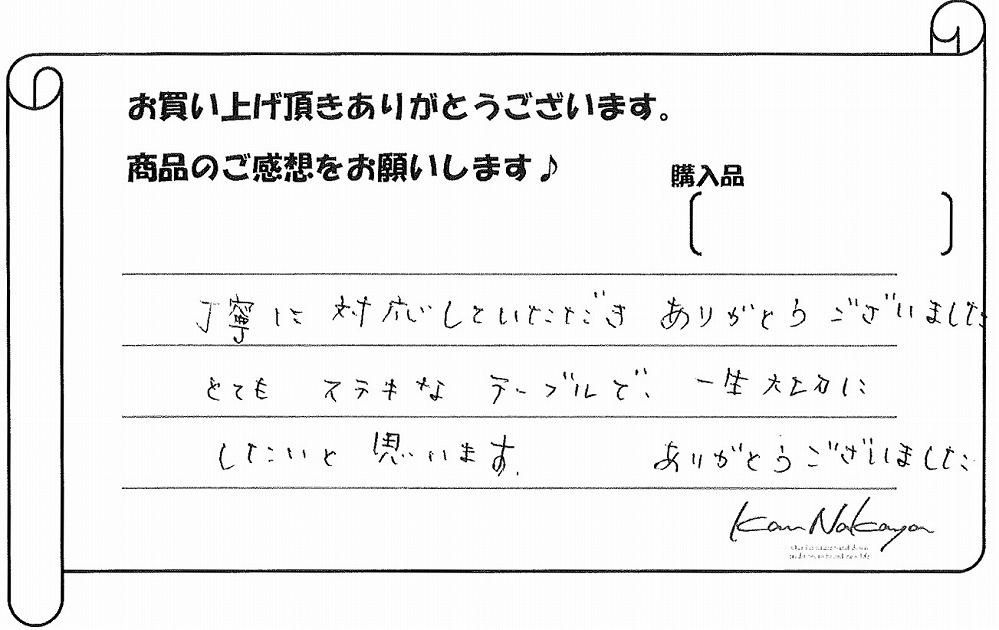 お買い上げ頂きありがとうございます。
商品のご感想をお願いします♪
購入品
丁寧に対応していただき ありがとうございました
とても ステキな テーブルで、一生大切に
したいと思います。 ありがとうございました
Kan Nakaya